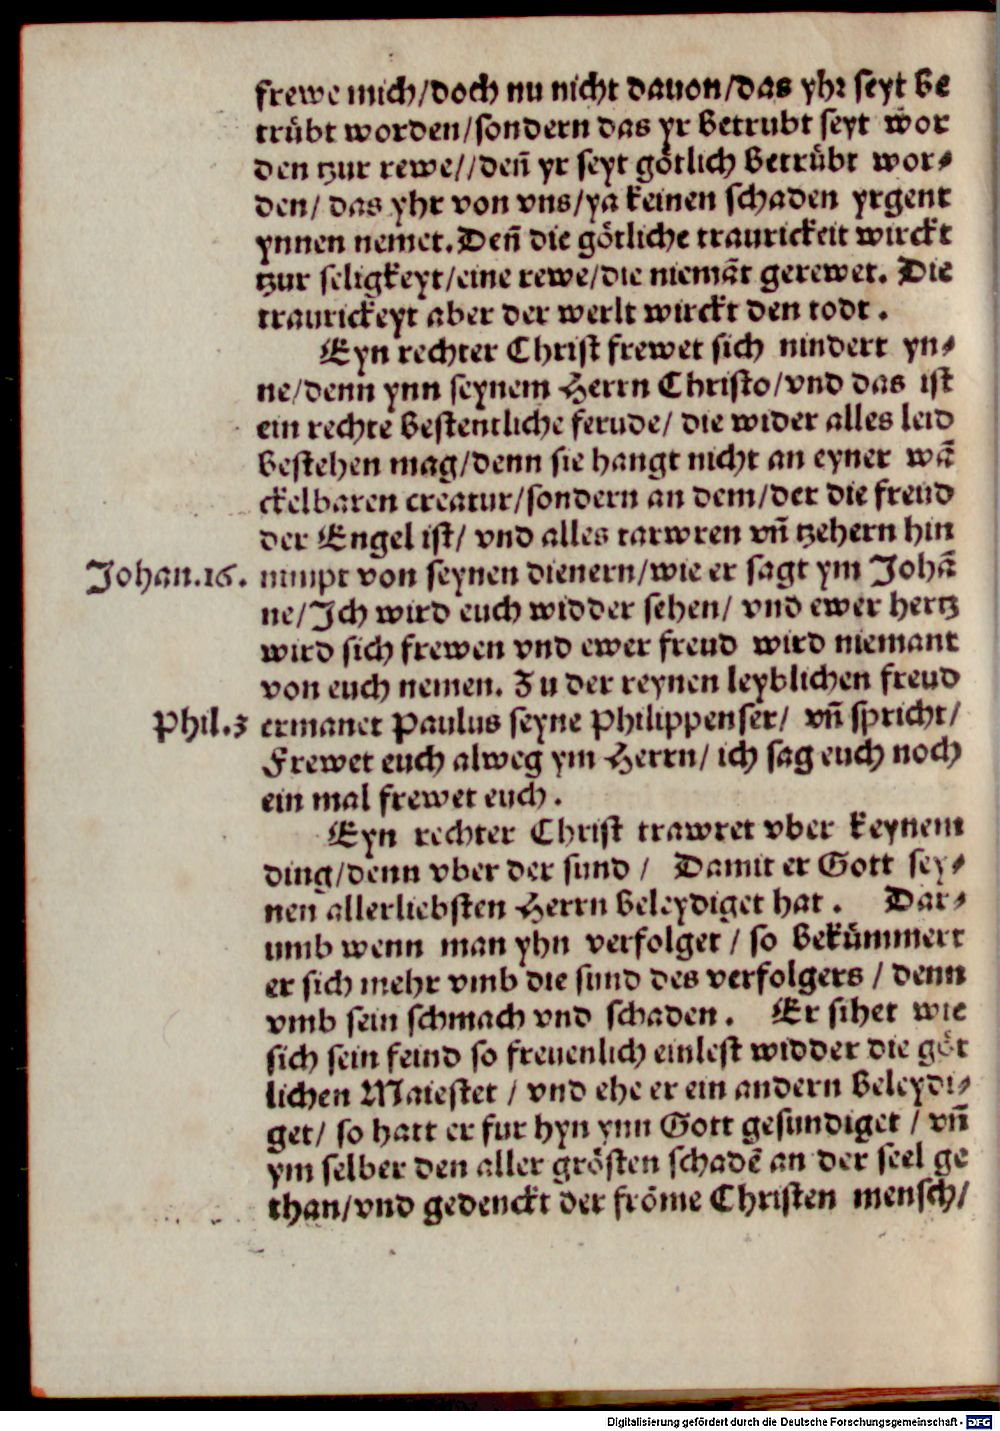 frewe mich/doch nu nicht dauon/das yhr seyt be
trübt worden/sondern das yr betrubt seyt wor
den tzur rewe//deñ yr seyt götlich betrübt wor-
den/ das yhr von vns/ya keinen schaden yrgent
ynnen nemet. Deñ die götliche traurickeit wirckt
tzur seligkeyt/eine rewe/die niemãt gerewet. Die
traurickeyt aber der werlt wirckt den todt.
Eyn rechter Christ frewet sich nindert yn-
ne/denn ynn seynem Herrn Christo/vnd das ist
ein rechte bestentliche ferude/ die wider alles leid
bestehen mag/denn sie hangt nicht an eyner wã
ckelbaren creatur/sondern an dem/der die freud
der Engel ist/ vnd alles tarwren vñ tzehern hin
Johan.16. nimpt von seynen dienern/wie er sagt ym Johã
ne/Ich wird euch widder sehen/ vnd ewer hertz
wird sich frewen vnd ewer freud wird niemant
von euch nemen. Zu der reynen leyblichen freud
Phil.3 ermanet Paulus seyne Philippenser/ vñ spricht/
Frewet euch alweg ym Herrn/ ich sag euch noch
ein mal frewet euch.
Eyn rechter Christ trawret vber keynem
ding/denn vber der sund/ Damit er Gott sey-
nen allerliebsten Herrn beleydiget hat. Dar-
umb wenn man yhn verfolget/ so bekümmert
er sich mehr vmb die sund des verfolgers/ denn
vmb sein schmach vnd schaden. Er sihet wie
sich sein feind so freuenlich einlest widder die göt
lichen Maiestet/ vnd ehe er ein andern beleydi-
get/ so hatt er fur hyn ynn Gott gesundiget/ vñ
ym selber den aller grösten schadẽ an der seel ge
than/vnd gedenckt der frõme Christen mensch/
Digitalisierung gefördert durch die Deutsche Forschungsgemeinschaft - DFG